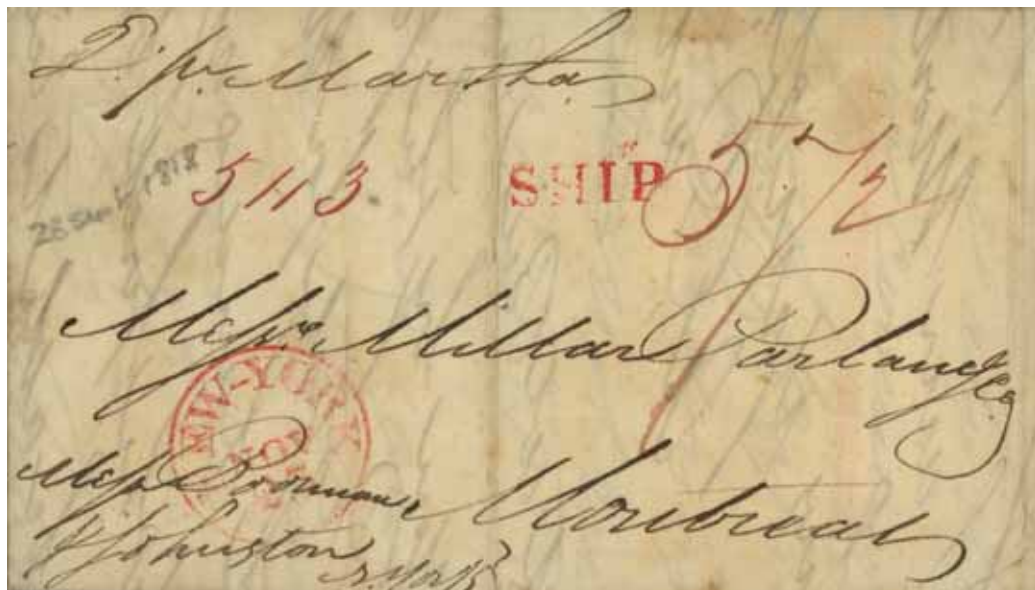 p. Martha
28 Sept 1818
5 11 3
SHIP
5 1/2
Messrs. Millar Parlane & Co
NEW-YORK
NOV
Messrs Boorman
& Johnston
N. York
Montreal